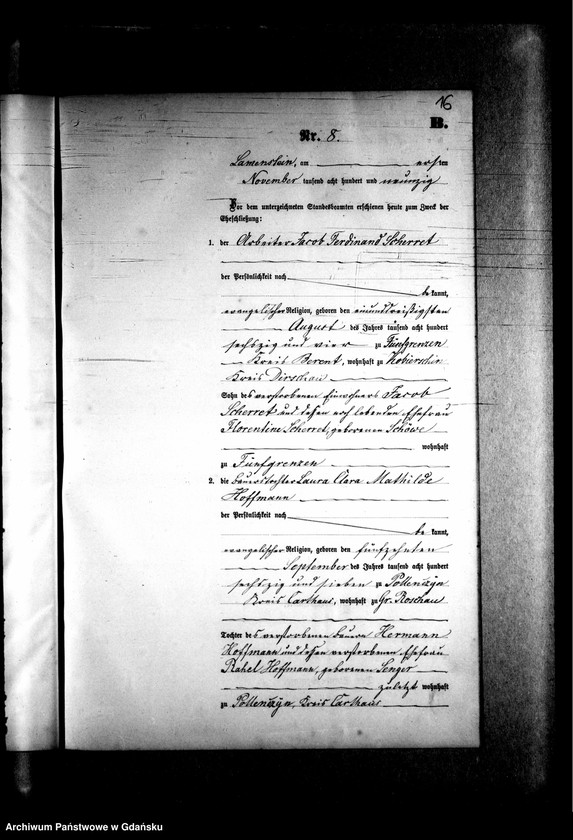 16
B.
Nr. 8.
Lamenstein, am ersten
November tausend acht hundert und neunzig
Vor dem unterzeichneten Standesbeamten erschienen heute zum Zweck der
Eheschließung:
1. der Arbeiter Jacob Ferdinand Scherret
der Persönlichkeit nach
bekannt,
evangelischer Religion, geboren den einunddreißigsten
August des Jahres tausend acht hundert
sechszig und vier zu Fünfgrenzen
Kreis Berent, wohnhaft zu
Kreis Dirschau
Sohn des verstorbenen Einwohners Jacob
Scherret und dessen noch lebenden Ehefrau
Florentine Scherret, geborenen Schöwe
wohnhaft
zu Fünfgrenzen
2. die Bauerstochter Laura Clara Mathilde
Hoffmann
der Persönlichkeit nach
bekannt,
evangelischer Religion, geboren den fünfzehnten
September des Jahres tausend acht hundert
sechszig und sieben zu Pollenczyn
Kreis Carthaus, wohnhaft zu Gr. Roschau
Tochter des verstorbenen Bauern Hermann
Hoffmann und dessen verstorbenen Ehefrau
Rahel Hoffmann, geborenen Senger
zuletzt wohnhaft
zu Pollenczyn, Kreis Carthaus
Archiwum Państwowe w Gdańsku